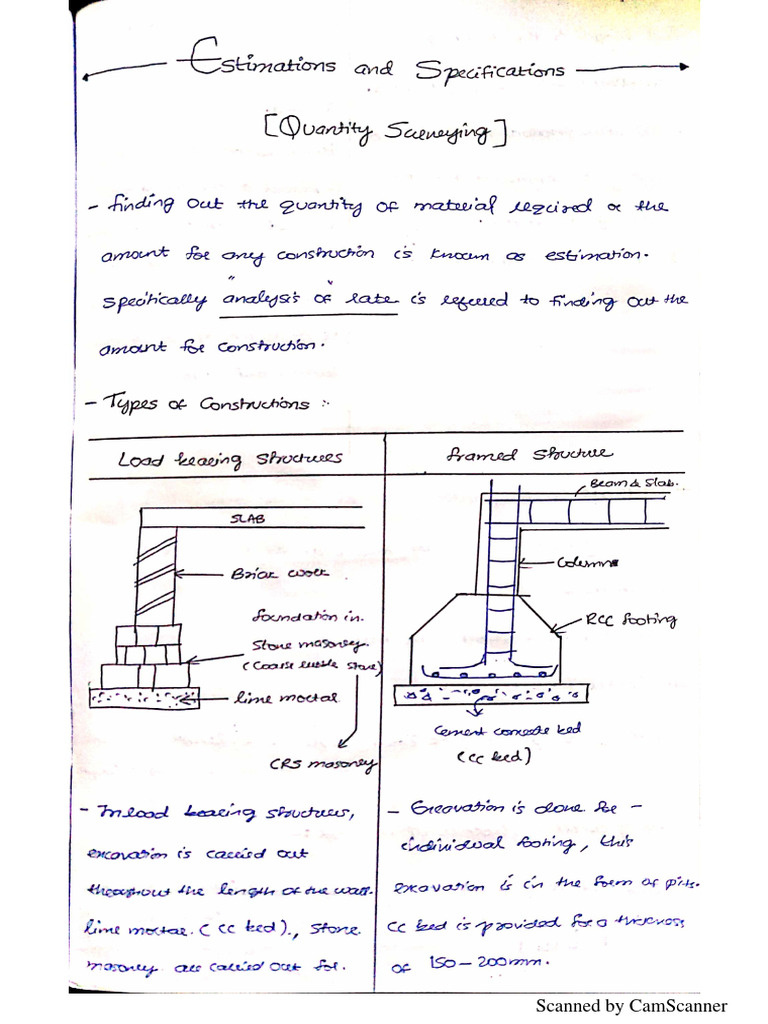 Estimations and Specifications
[Quantity Surveying]
- Finding out the quantity of material required or the
amount for any construction is known as estimation.
Specifically "analysis of rate" is referred to finding out the
amount for construction.
- Types of Constructions :-
Load bearing Structures
SLAB
Brick work
foundation in.
Stone masonry.
(Coarse rubble stone)
lime mortar
CRS masonry
- In load bearing structures,
excavation is carried out
throughout the length of the wall.
lime mortar. (CC bed)., stone
masonry are carried out for.
framed Structure
Beam & Slab.
Column
RCC footing
Cement concrete bed
(CC bed)
- Excavation is done for -
individual footing, this
excavation is in the form of pits.
CC bed is provided for a thickness
of 150-200mm.
Scanned by CamScanner